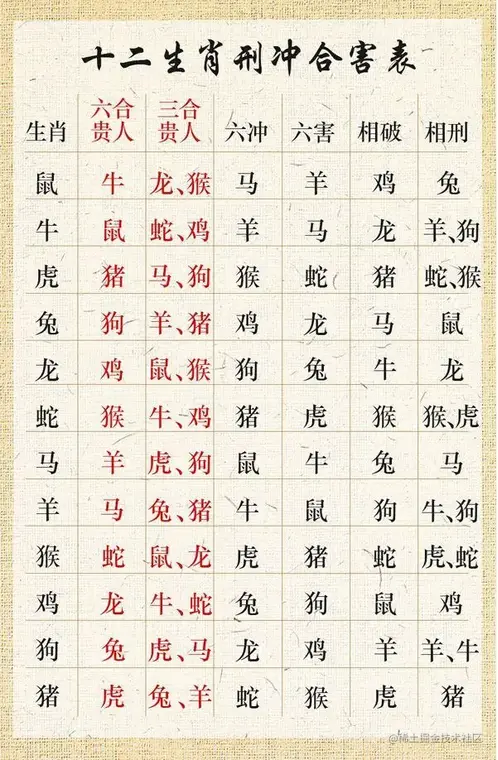 十二生肖刑冲合害表
生肖 六合贵人 三合贵人 六冲 六害 相破 相刑
鼠 牛 龙、猴 马 羊 鸡 兔
牛 鼠 蛇、鸡 羊 马 龙 羊、狗
虎 猪 马、狗 猴 蛇 猪 蛇、猴
兔 狗 羊、猪 鸡 龙 马 鼠
龙 鸡 鼠、猴 狗 兔 牛 龙
蛇 猴 牛、鸡 猪 虎 猴 猴、虎
马 羊 虎、狗 鼠 牛 兔 马
羊 马 兔、猪 牛 鼠 狗 牛、狗
猴 蛇 鼠、龙 虎 猪 蛇 虎、蛇
鸡 龙 牛、蛇 兔 狗 鼠 鸡
狗 兔 虎、马 龙 鸡 羊 羊、牛
猪 虎 兔、羊 蛇 猴 虎 猪
@稀土掘金技术社区